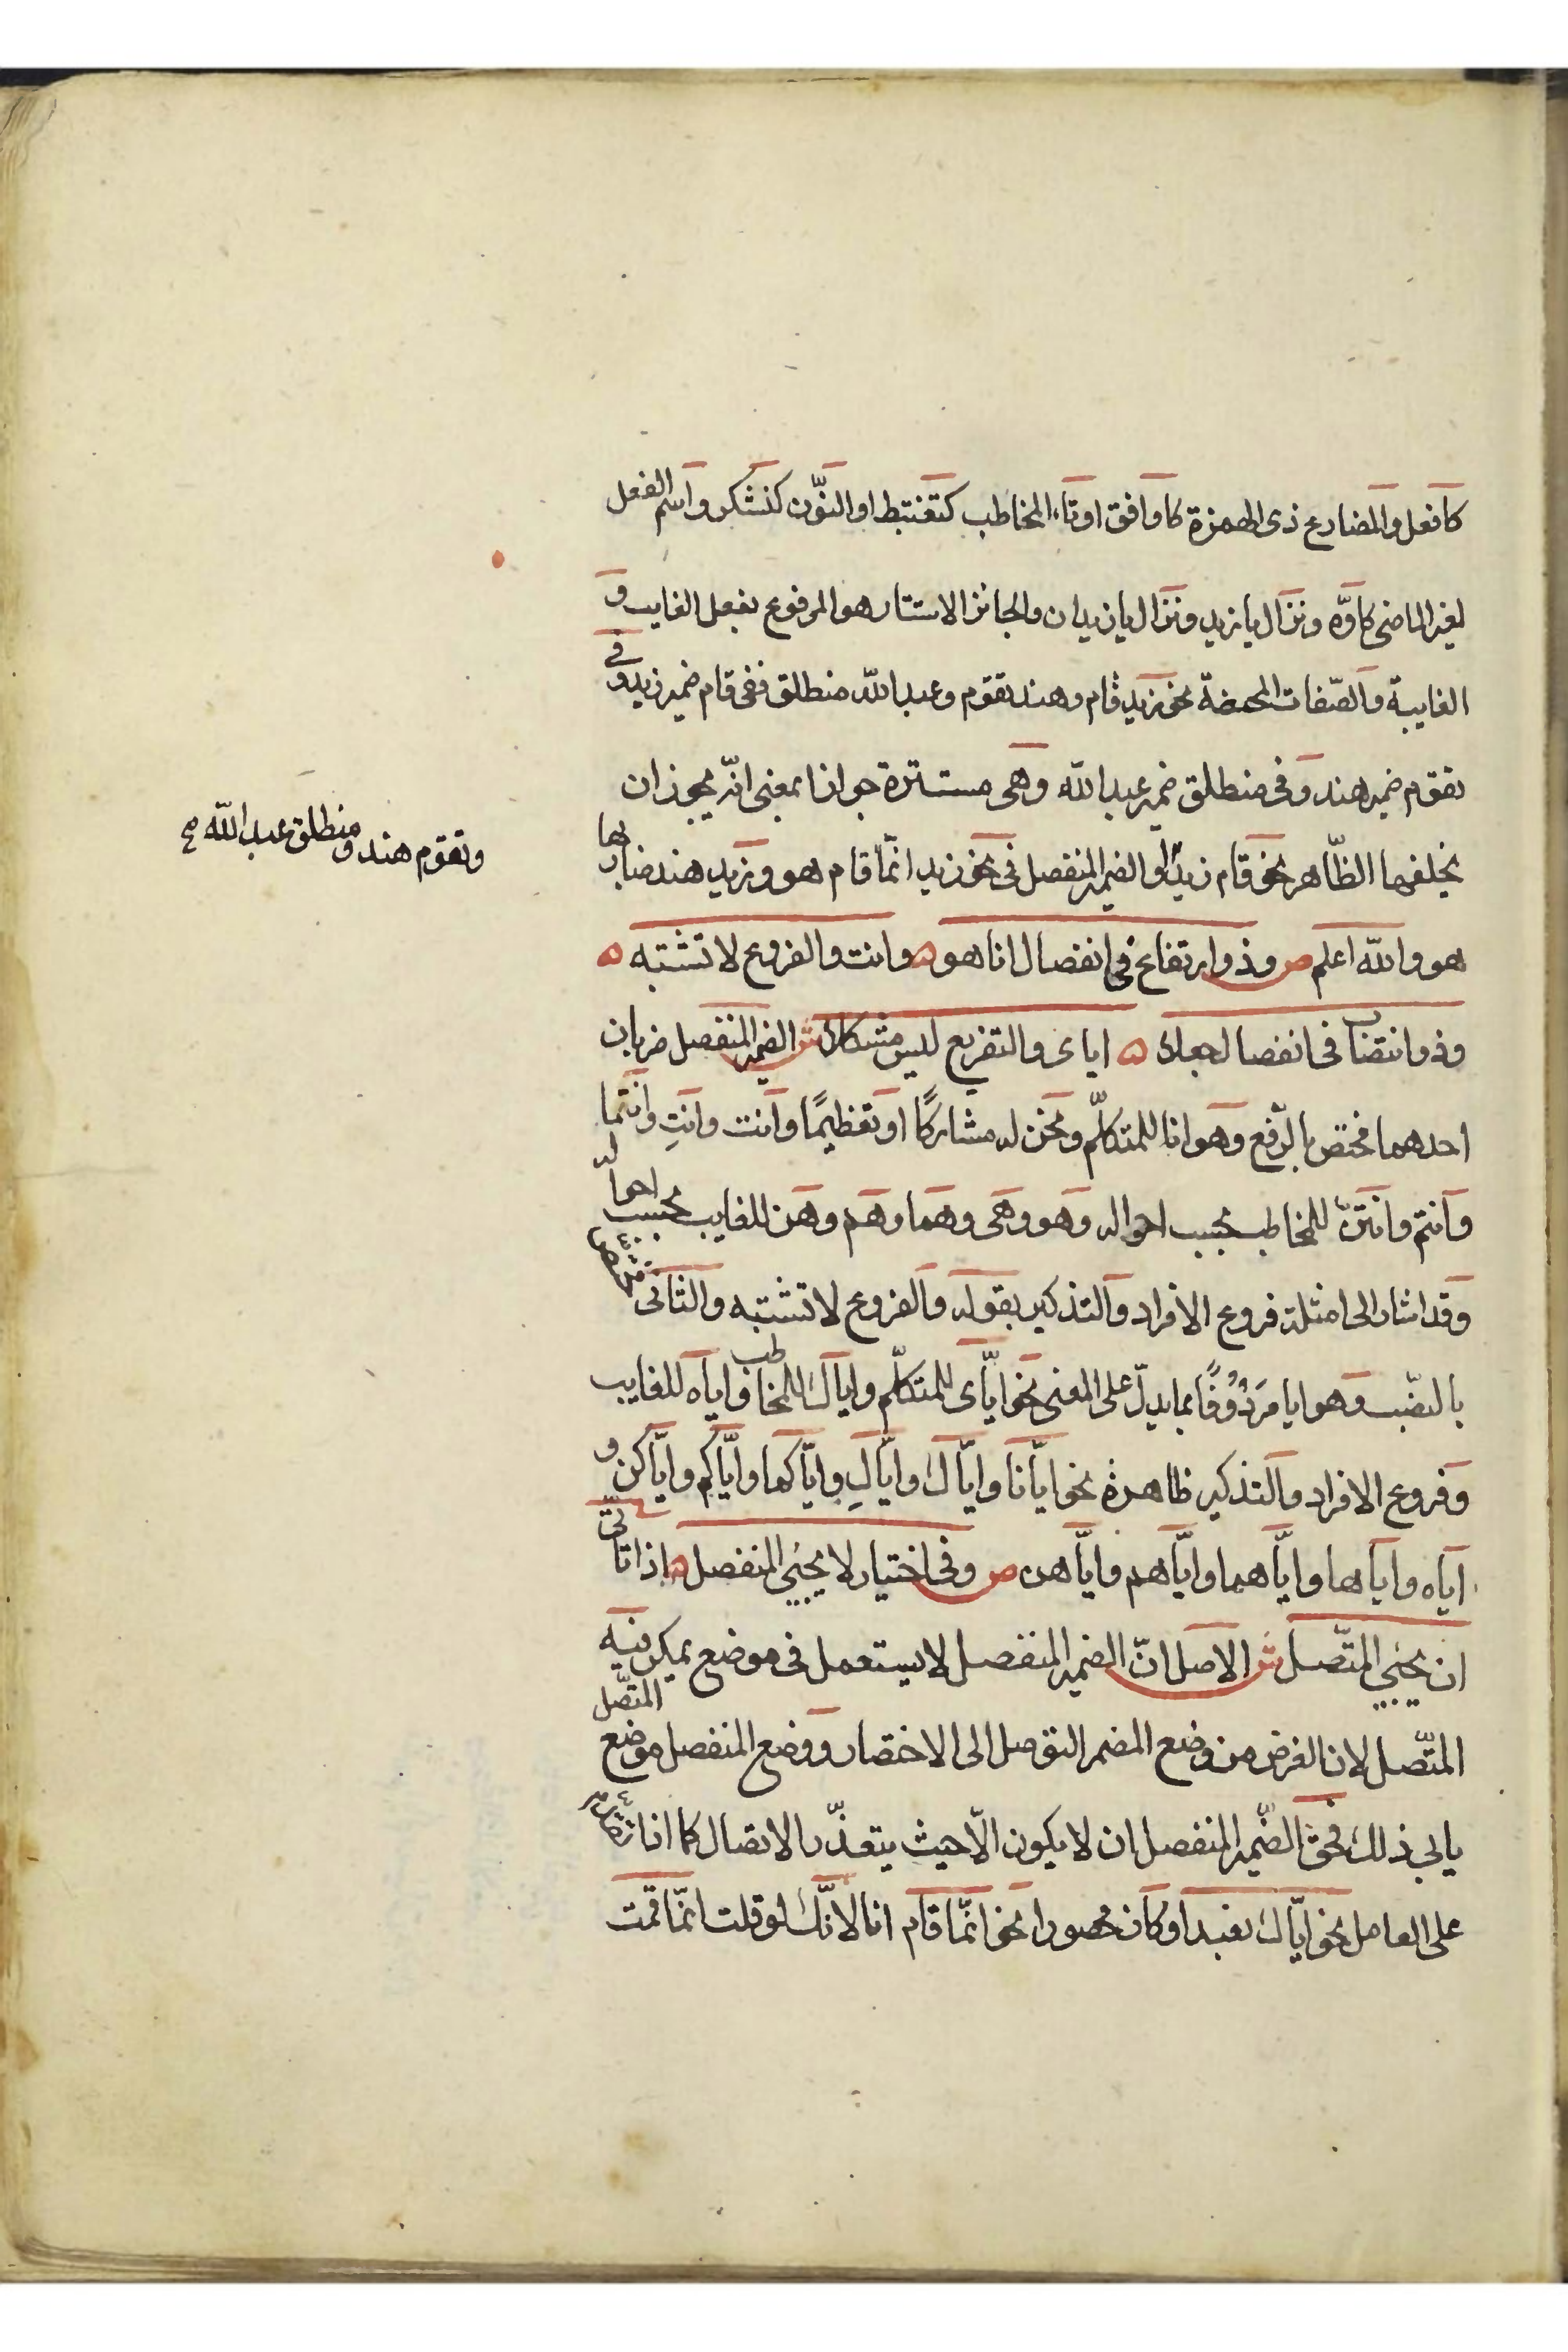 كافعل والمضارع ذى الهمزة كاوافق او تاء المخاطب كتغتبط او النّون كنشكر واسم الفعل
لغير الماضى كاوّه ونزال يا زيد ونزال يا زيدان والجائز الاستتار هو المرفوع بفعل الغايب و
الغايبة والصّفات المحضة نحو زيد قام وهند تقوم وعبد الله منطلق ففى قام ضمير زيد وفى
تقوم ضمير هند وفى منطلق ضمير عبد الله وهى مستترة جوازا بمعنى انّه يجوز ان
يخلفها الظّاهر نحو قام زيد او الضمير المنفصل فى نحو زيد انّما قام هو وزيد هند ضاربها
وتقوم هند ومنطلق عبد الله صح
هو والله اعلم ص وذو ارتفاع فى انفصال انا هو ه وانت والفروع لا تشتبه ه
وذو انتصاب فى انفصال جعلا ه اياى والتفريع ليس مشكلا ش الضمير المنفصل ضربان
احدهما مختص بالرّفع وهو انا للمتكلّم ونحن له مشاركًا او تعظيمًا وانت وانتِ وانتما
وانتم وانتنّ للمخاطب بحسب احواله وهو وهى وهما وهم وهن للغايب بحسب احواله
وقد اشار الى امثلة فروع الافراد والتذكير بقوله والفروع لا تشتبه والثانى مختص
بالنصّب وهو ايا مردُوفًا بما يدلّ على المعنى نحو ايّاى للمتكلّم واياك للمخاطب واياه للغايب
وفروع الافراد والتذكير ظاهرة نحو ايّانا وايّاك وايّاكِ وايّاكما وايّاكم وايّاكن و
اياه واياها وايّاهما وايّاهم وايّاهن ص وفى اختيار لا يجيئ المنفصل ه اذا تاتّى
ان يجيئ المتّصل ش الاصل انّ الضمير المنفصل لا يستعمل فى موضع يمكن فيه
المتّصل لان الغرض من وضع المضمر التوصل الى الاختصار ووضع المنفصل موضع المتّصل
يابى ذلك فحق الضّمير المنفصل ان لا يكون الّا حيث يتعذّر الاتصال كما اذا تقدم
على العامل نحو ايّاك نعبد او كان محصورا نحو انّما قام انا لانّك لو قلت انمّا قمت